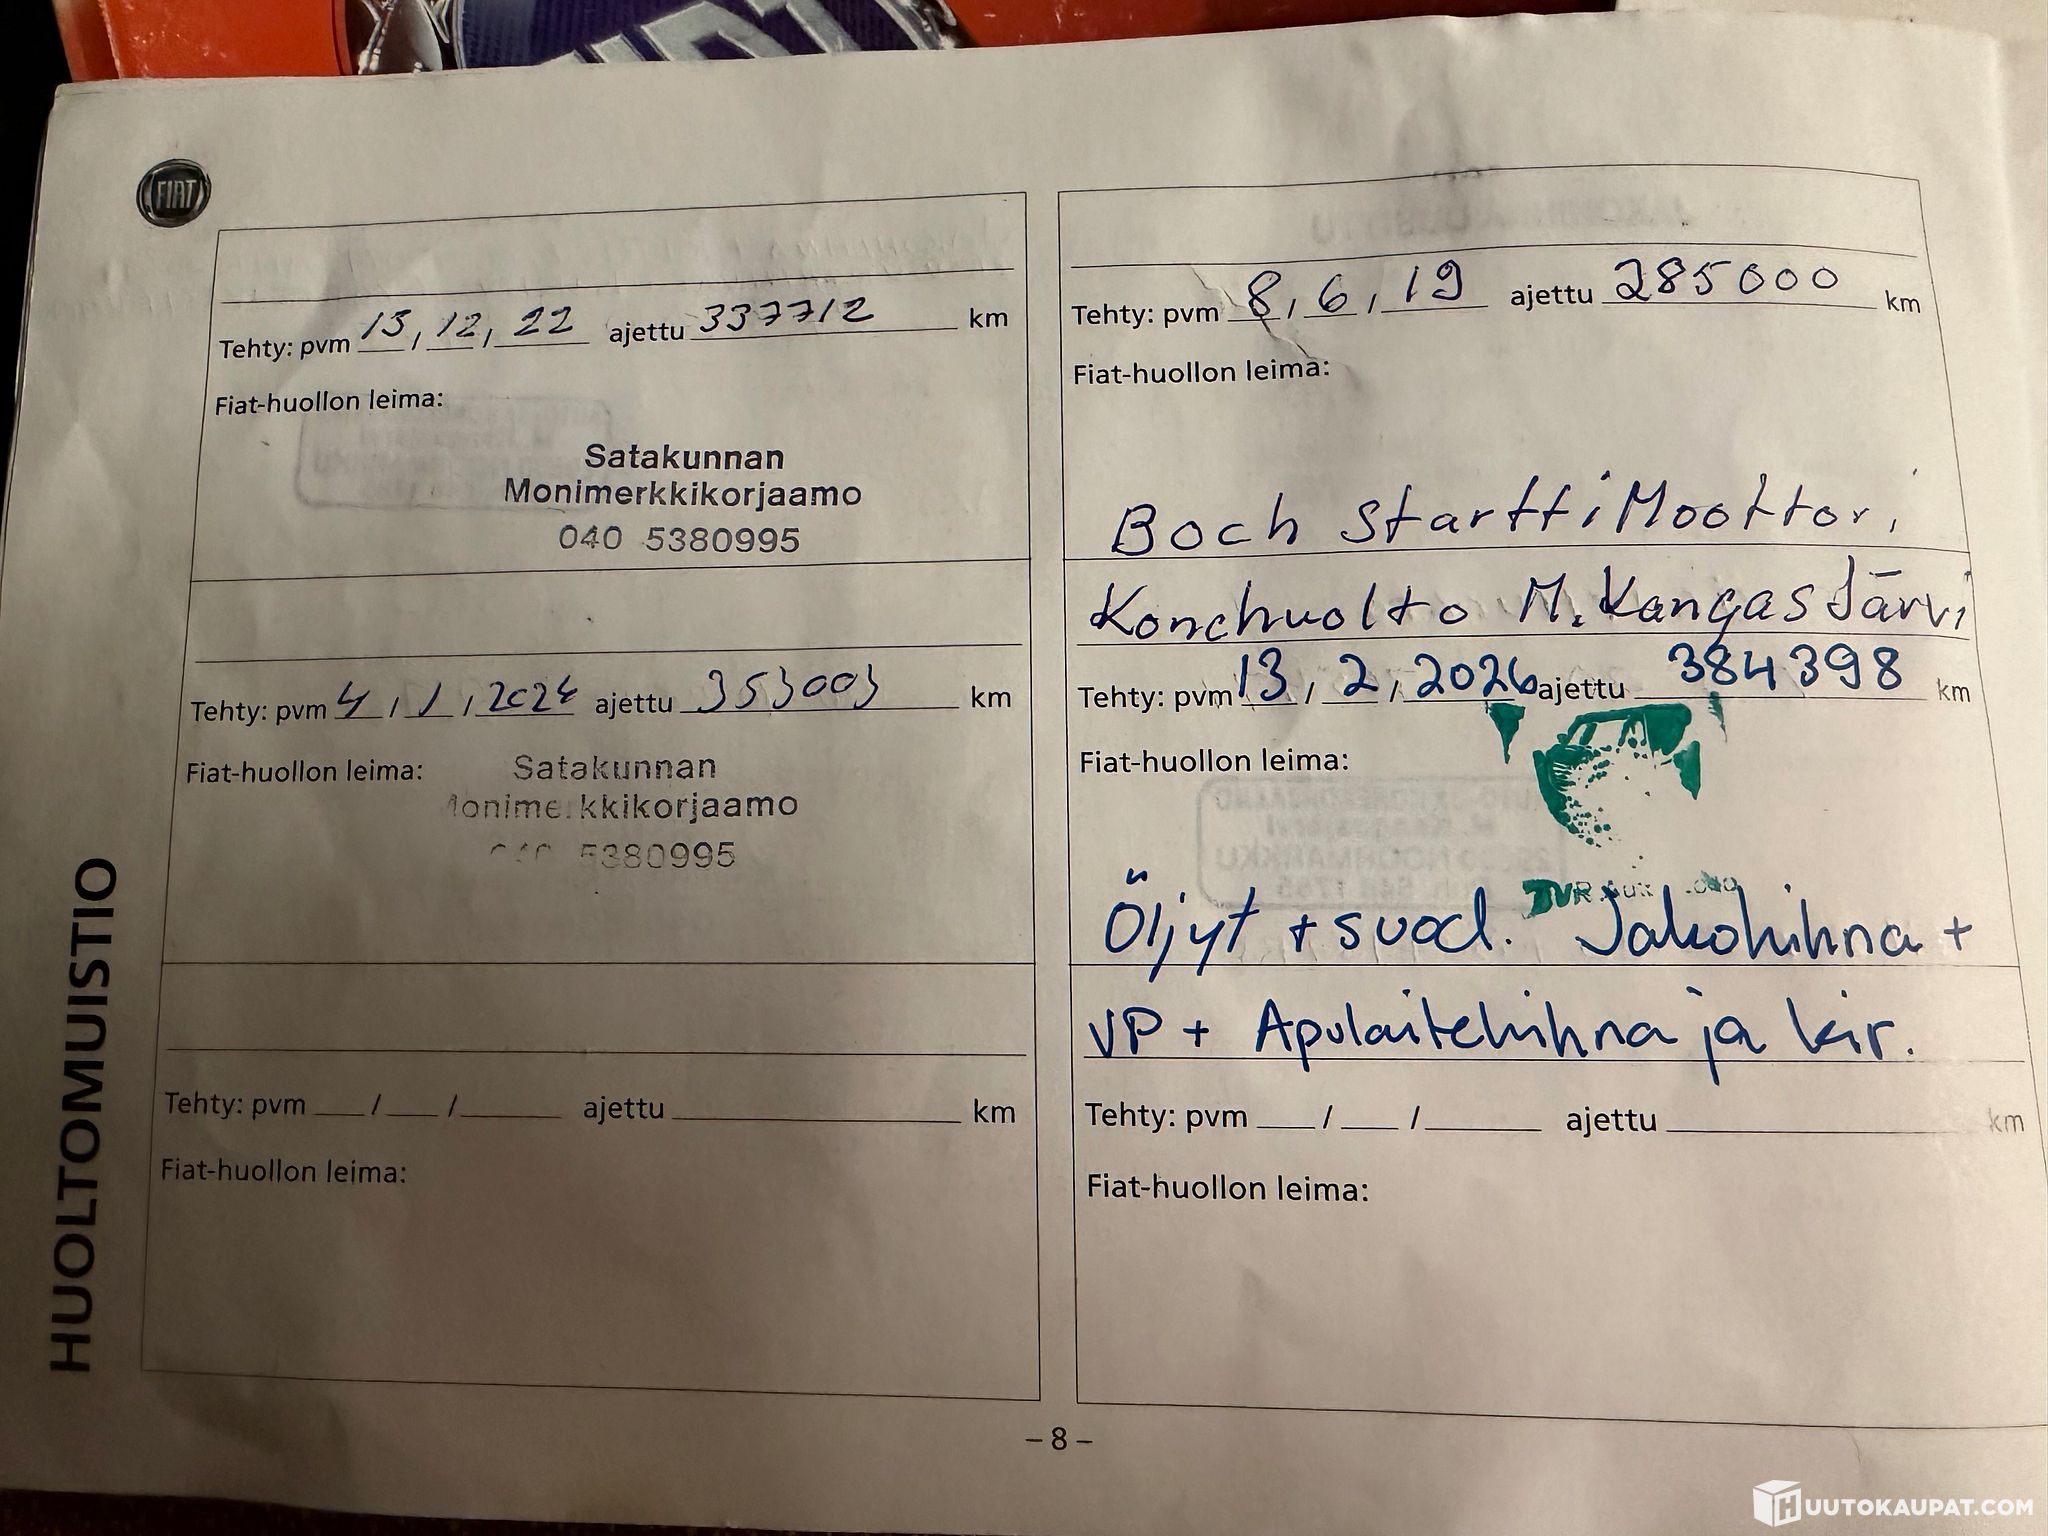 FIAT
HUOLTOMUISTIO
Tehty: pvm 13, 12, 22 ajettu 337712 km
Fiat-huollon leima:
Satakunnan
Monimerkkikorjaamo
040 5380995
Tehty: pvm 4, 1, 2024 ajettu 353003 km
Fiat-huollon leima:
Satakunnan
Monime kkikorjaamo
040 5380995
Tehty: pvm / / ajettu km
Fiat-huollon leima:
Tehty: pvm 8, 6, 19 ajettu 285000 km
Fiat-huollon leima:
Boch StarttiMoottori
Konehuolto M. KangasJärvi
Tehty: pvm 13 / 2 / 2026 ajettu 384398 km
Fiat-huollon leima:
Öljyt + suod. Jakohihna +
VP + Apulaitehihna ja kir.
Tehty: pvm / / ajettu km
Fiat-huollon leima:
– 8 –
HUUTOKAUPAT.COM